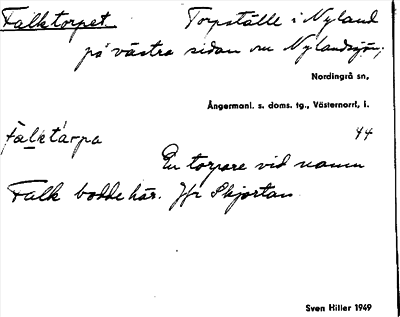 Falktorpet Torpställe i Nyland
på västra sidan om Nylandssjön;
Nordingrå sn,
Ångermanl. s. doms. tg., Västernorrl. l.
fàlktárpa 44
En torpare vid namn
Falk bodde här. Jfr Skjortan.
Sven Hiller 1949